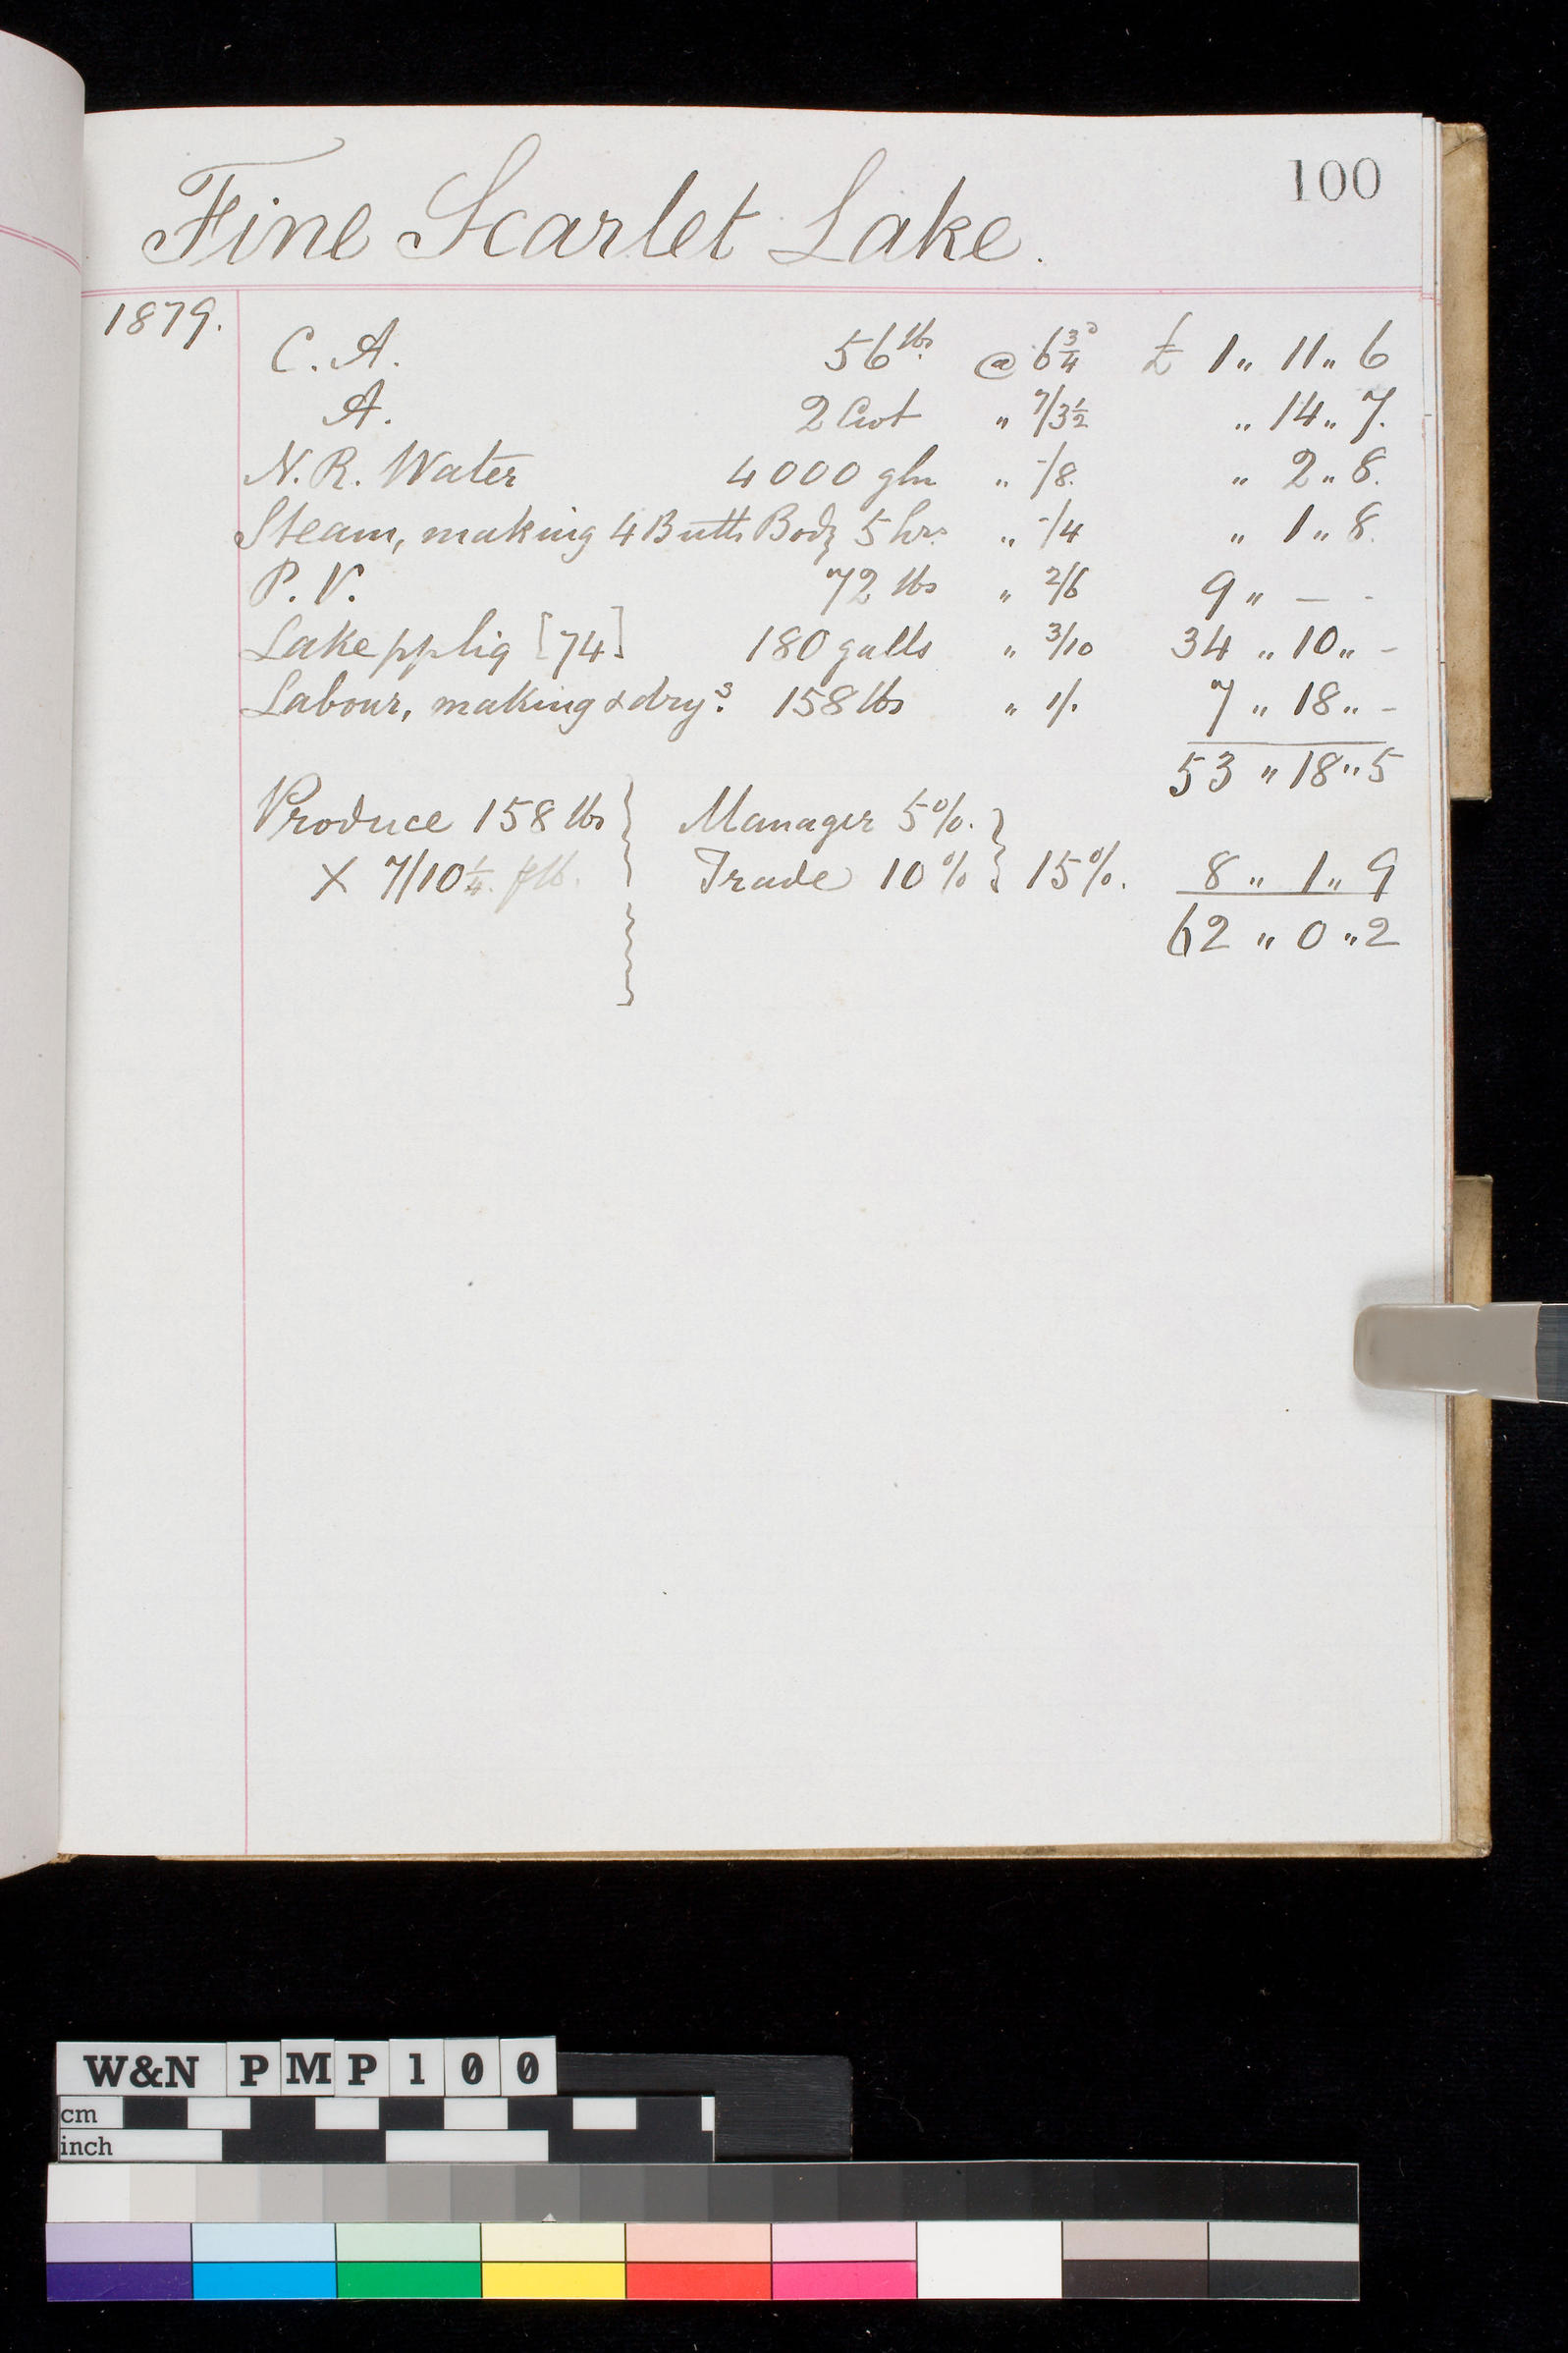 100
Fine Scarlet Lake.
1879.
C. A. 56 lbs. @ 6¾ᵈ £ 1 „ 11 „ 6
A. 2 Cwt „ 7/3½ „ 14 „ 7.
N. R. Water 4000 gln „ -/8. „ 2 „ 8.
Steam, making 4 Butts Body 5 hrs „ -/4 „ 1 „ 8.
P. V. 72 lbs „ 2/6 9 „ — -
Lake pp liq [74] 180 galls „ 3/10 34 „ 10 „ -
Labour, making & dryᵍ. 158 lbs „ 1/. 7 „ 18 „ -
53 „ 18 „ 5
Produce 158 lbs } Manager 5%. }
X 7/10¼. plb. Trade 10% } 15%. 8 „ 1 „ 9
62 „ 0 „ 2
W&N PMP100
cm
inch